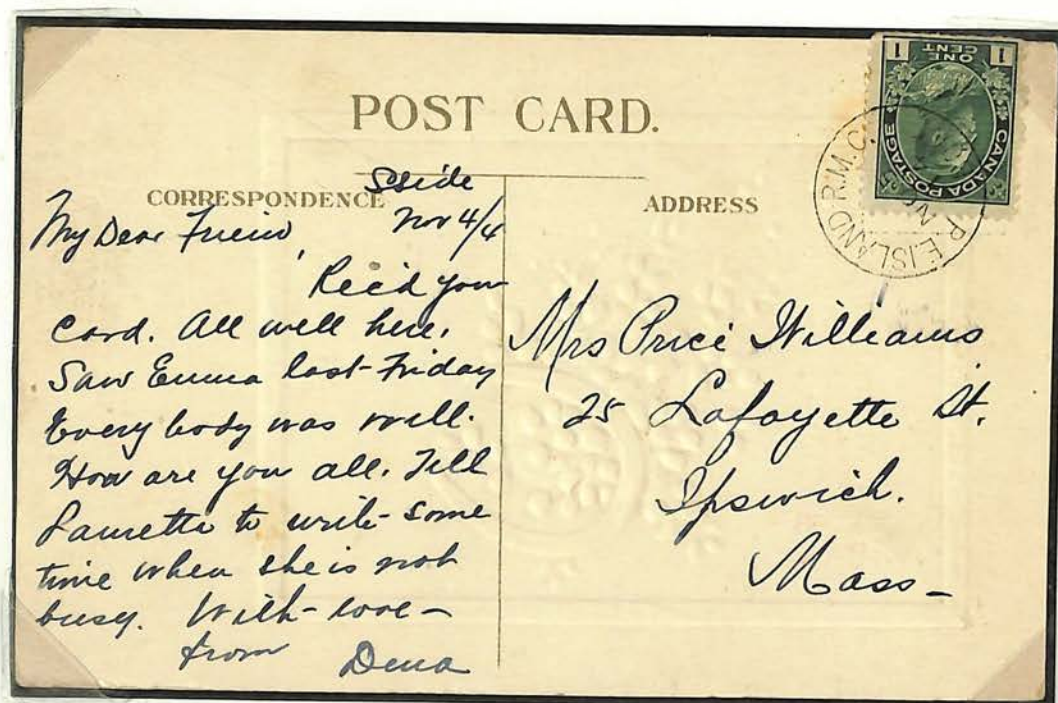 POST CARD.
CORRESPONDENCE
ADDRESS
Sside
Nov 4/4
My Dear Friend,
Rec'd your
card. All well here.
Saw Emma last Friday
Every body was well.
How are you all. Tell
Lauretta to write some
time when she is not
busy. With love
from Dena
Mrs Price Williams
25 Lafayette St.
Ipswich.
Mass
1 ONE CENT 1
CANADA POSTAGE
P.E.ISLAND R.M.C.